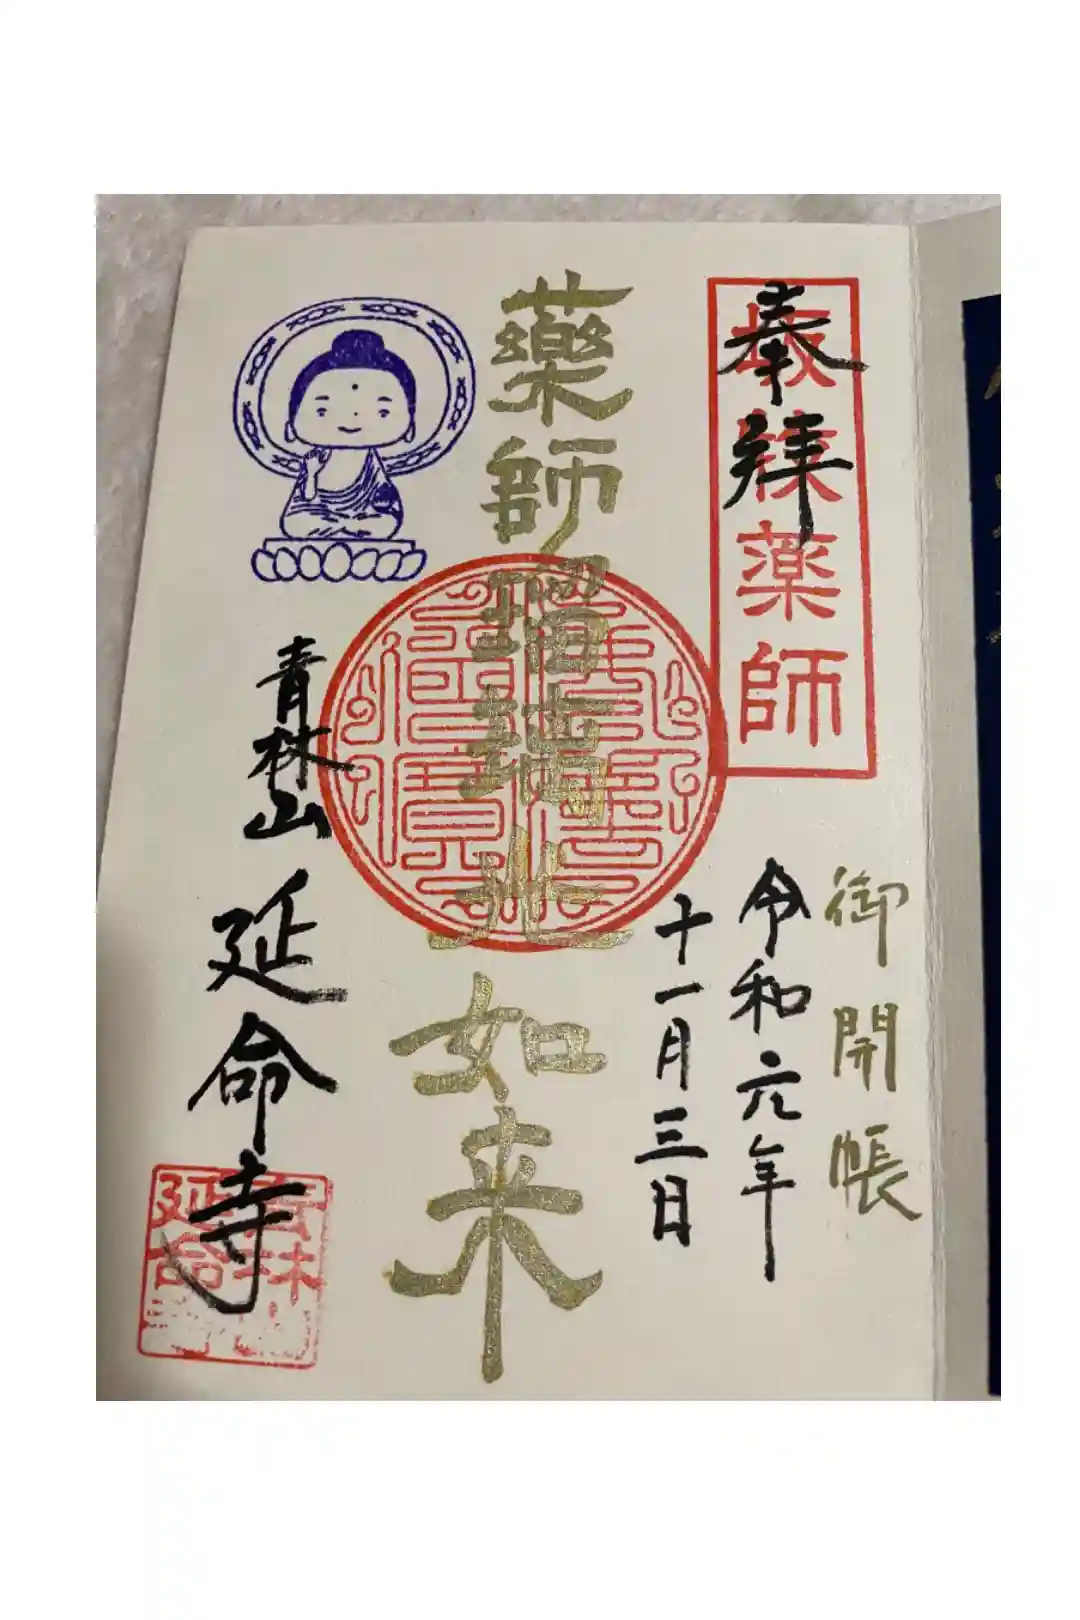 奉拝
薬師
御開帳
令和元年
十一月三日
藥師瑠璃光如来
青林山 延命寺